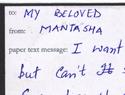 to: MY BELOVED
from: MANTASHA
paper text message: I want
but can't